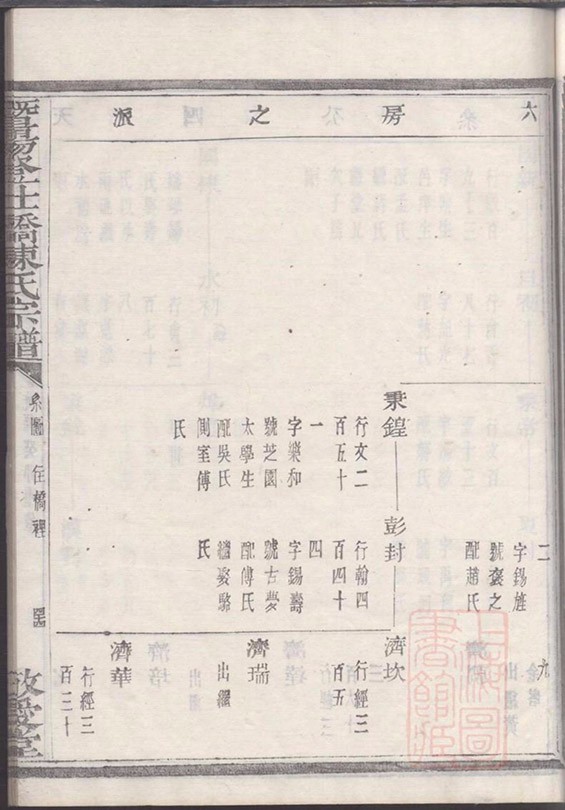 六房之派
二
字錫旌
號褒之
配趙氏
九
秉鍠
行文二
百五十
一
字樂和
號芝園
太學生
配吳氏
側室傅
氏
彭封
行翰四
百四十
四
字錫壽
號古夢
配傅氏
繼娶駱
氏
濟坎
行經三
百五
濟瑞
出繼
濟華
行經三
百三十
暨陽登仕橋陳氏宗譜
系圖
住橋裡
敬愛堂
上海圖書館藏